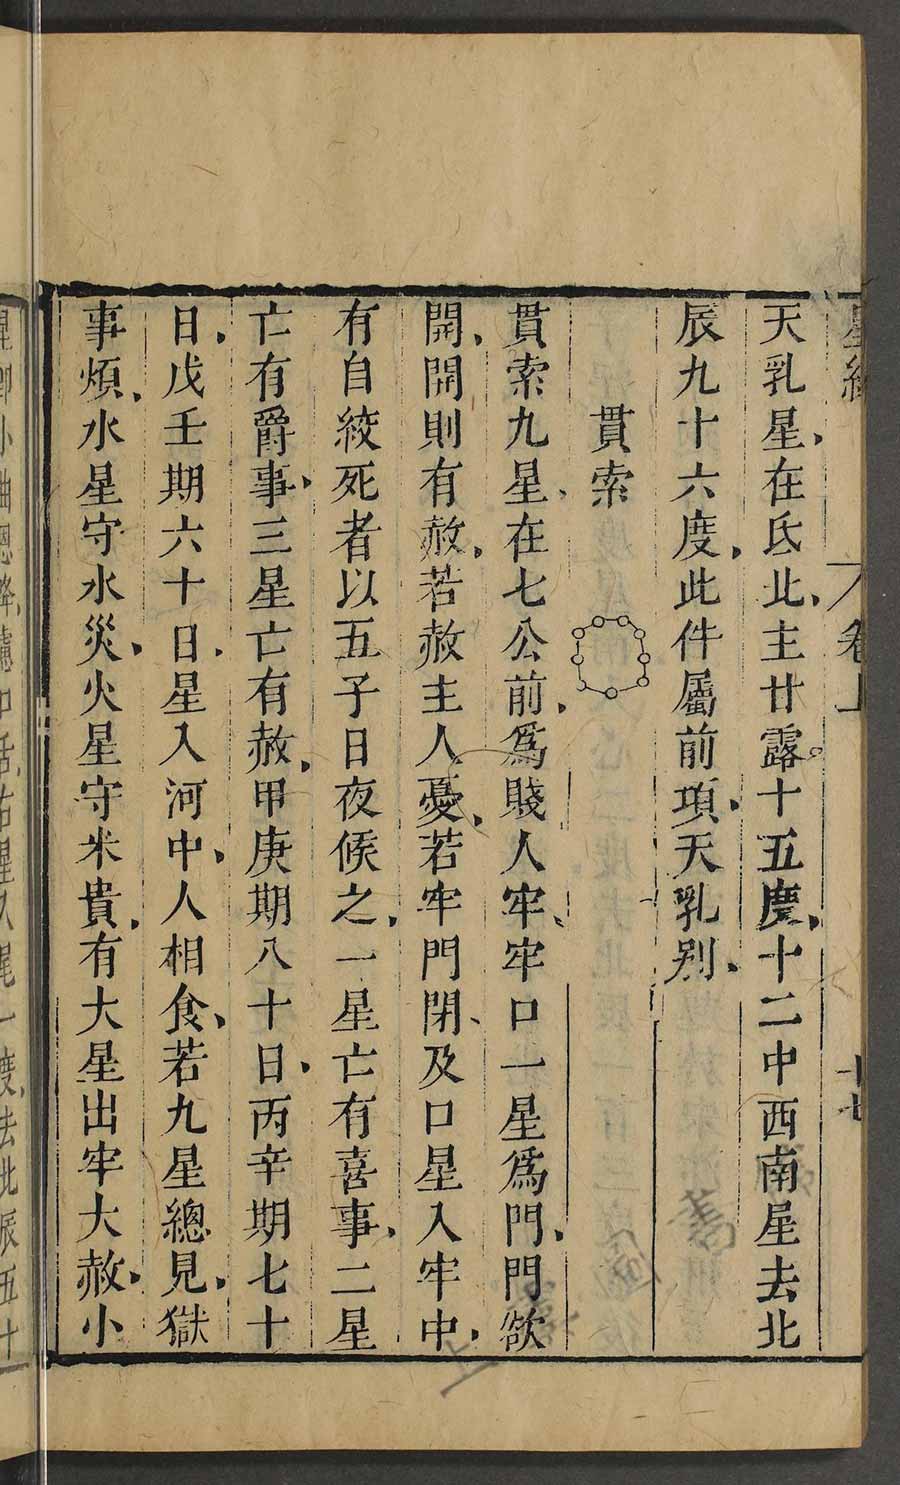 星經
卷上
十七
天乳星在氐北主甘露十五度十二中西南星去北
辰九十六度此件屬前項天乳别
貫索
貫索九星在七公前爲賤人牢牢口一星爲門門欲
開開則有赦若赦主人憂若牢門閉及口星入牢中
有自絞死者以五子日夜候之一星亡有喜事二星
亡有爵事三星亡有赦甲庚期八十日丙辛期七十
日戊壬期六十日星入河中人相食若九星總見獄
事煩水星守水災火星守米貴有大星出牢大赦小